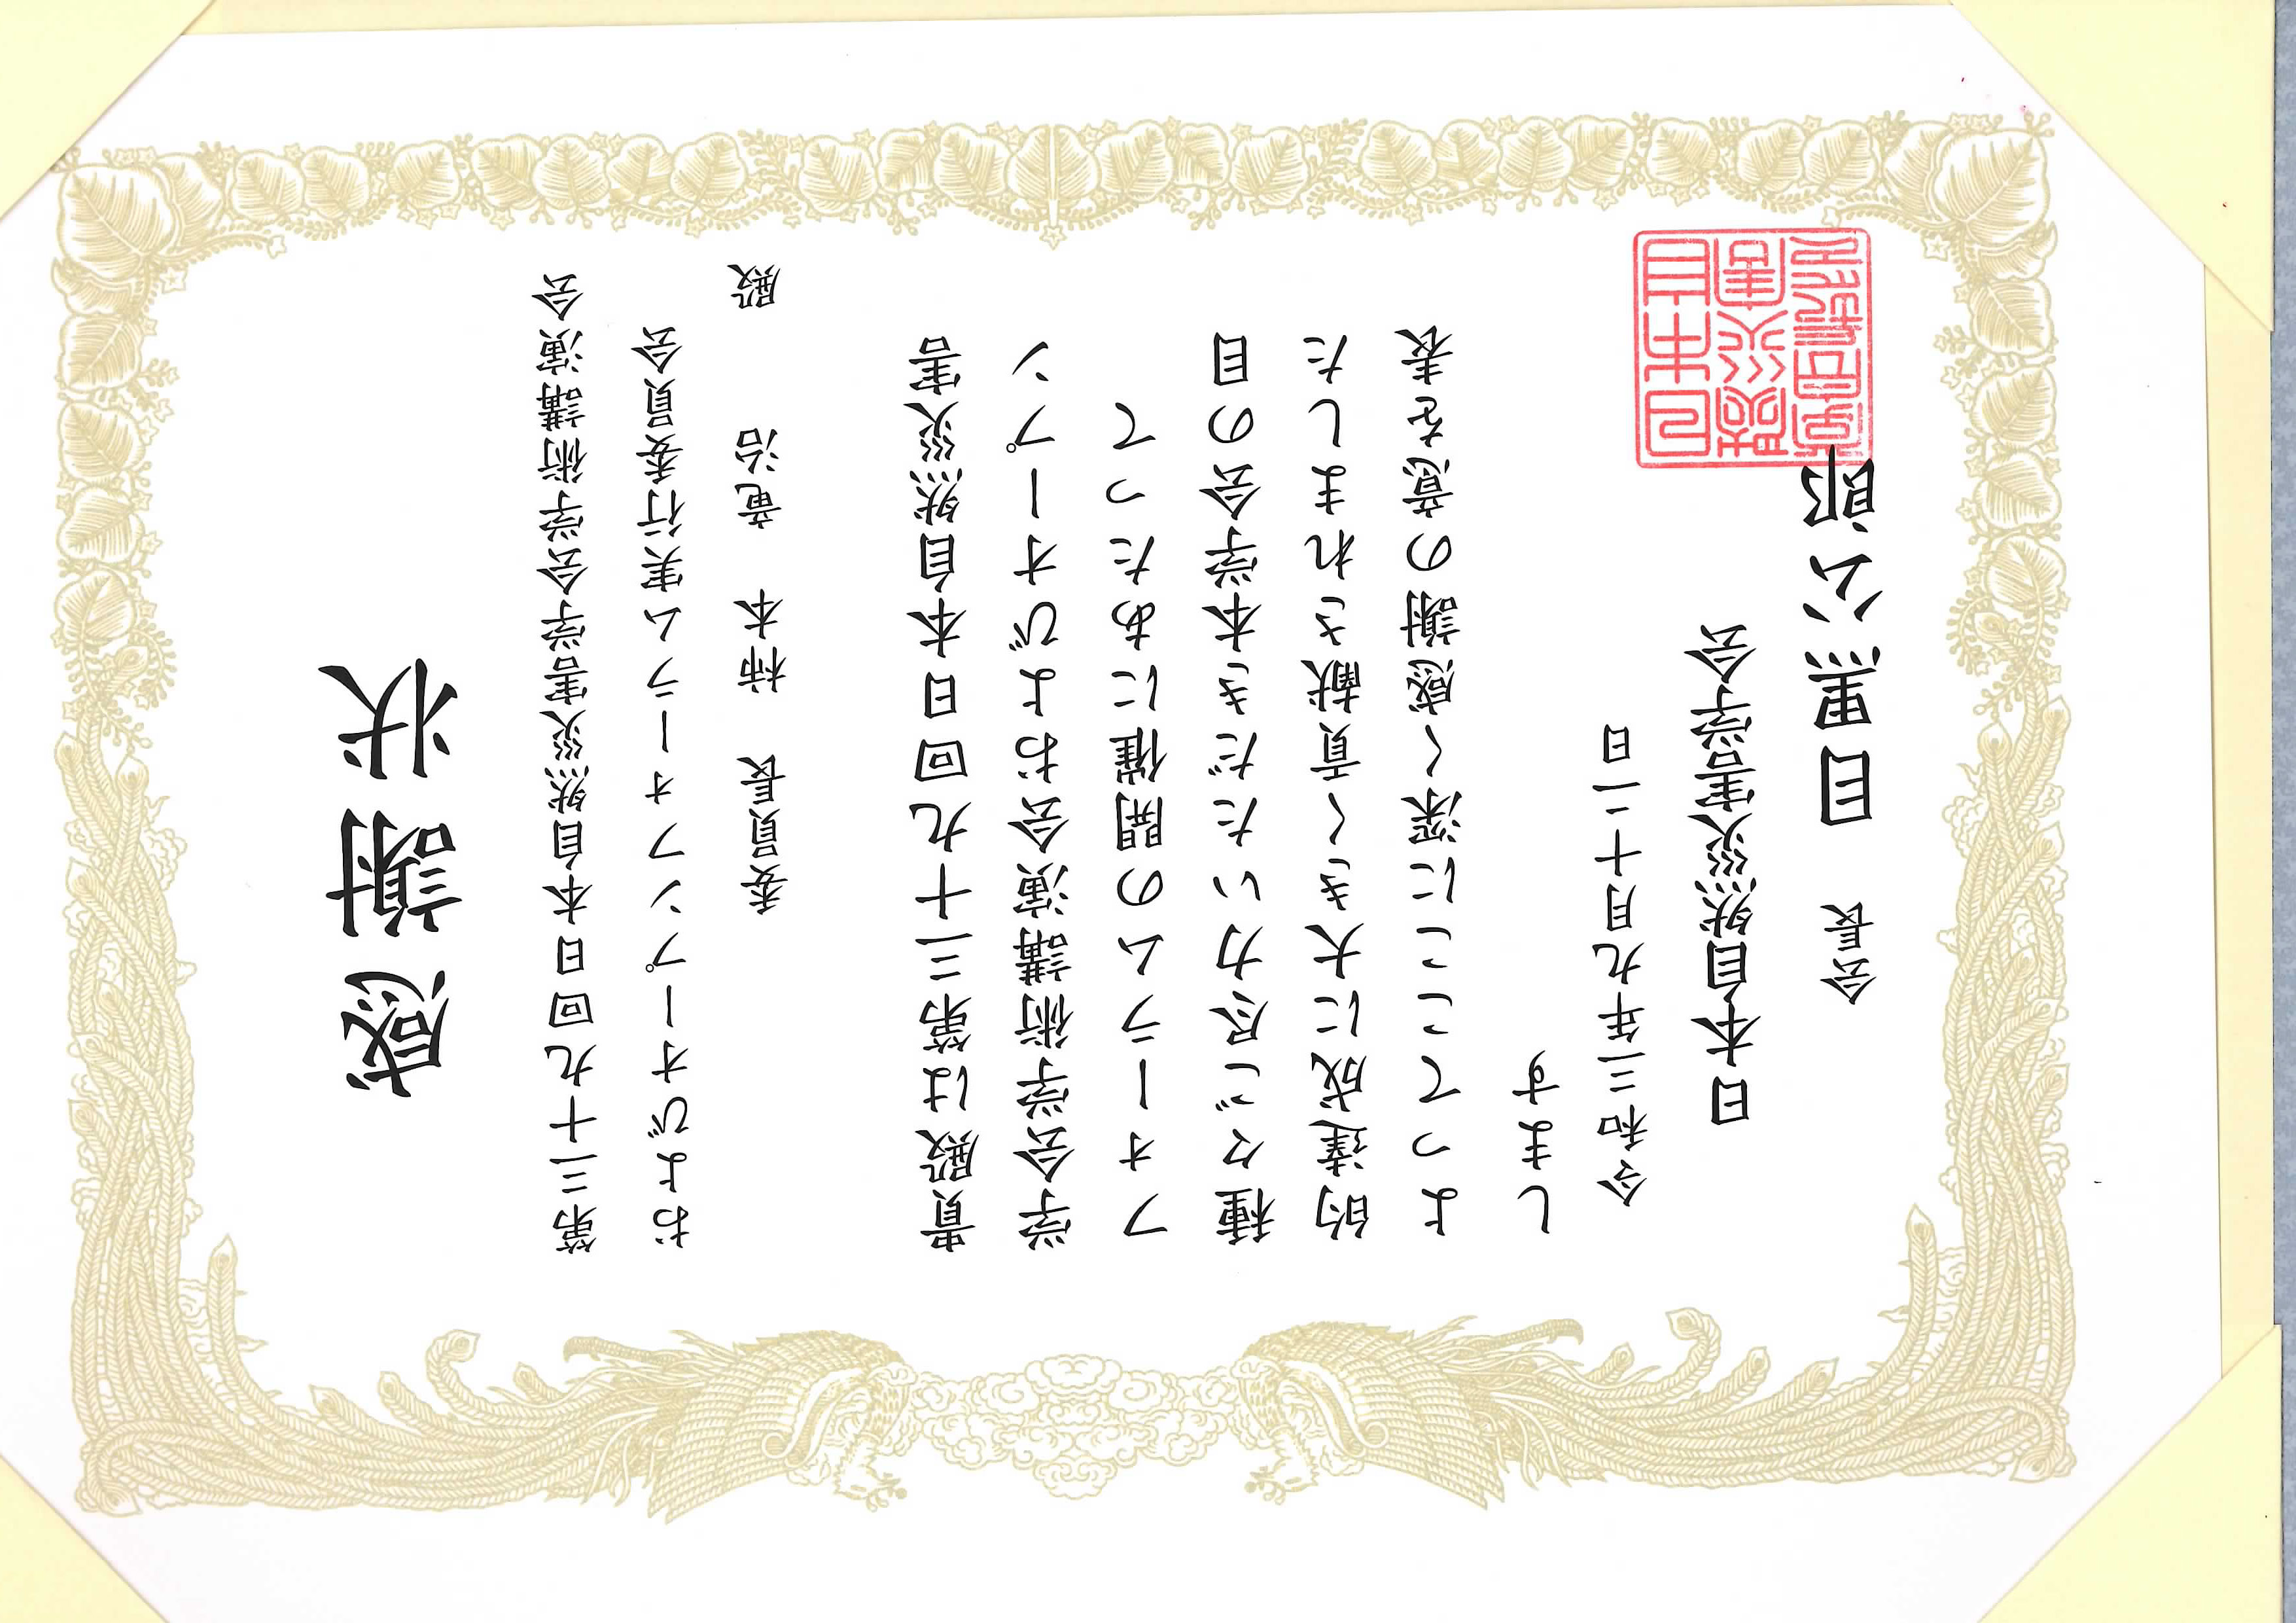 感謝状
第三十九回日本自然災害学会学術講演会
およびオープンフォーラム実行委員会
委員長 柿本 竜治 殿
貴殿は第三十九回日本自然災害
学会学術講演会およびオープン
フォーラムの開催にあたって
種々ご尽力いただき本学会の目
的達成に大きく貢献されました
よってここに深く感謝の意を表
します
令和三年九月十二日
日本自然災害学会
会長 目黒公郎